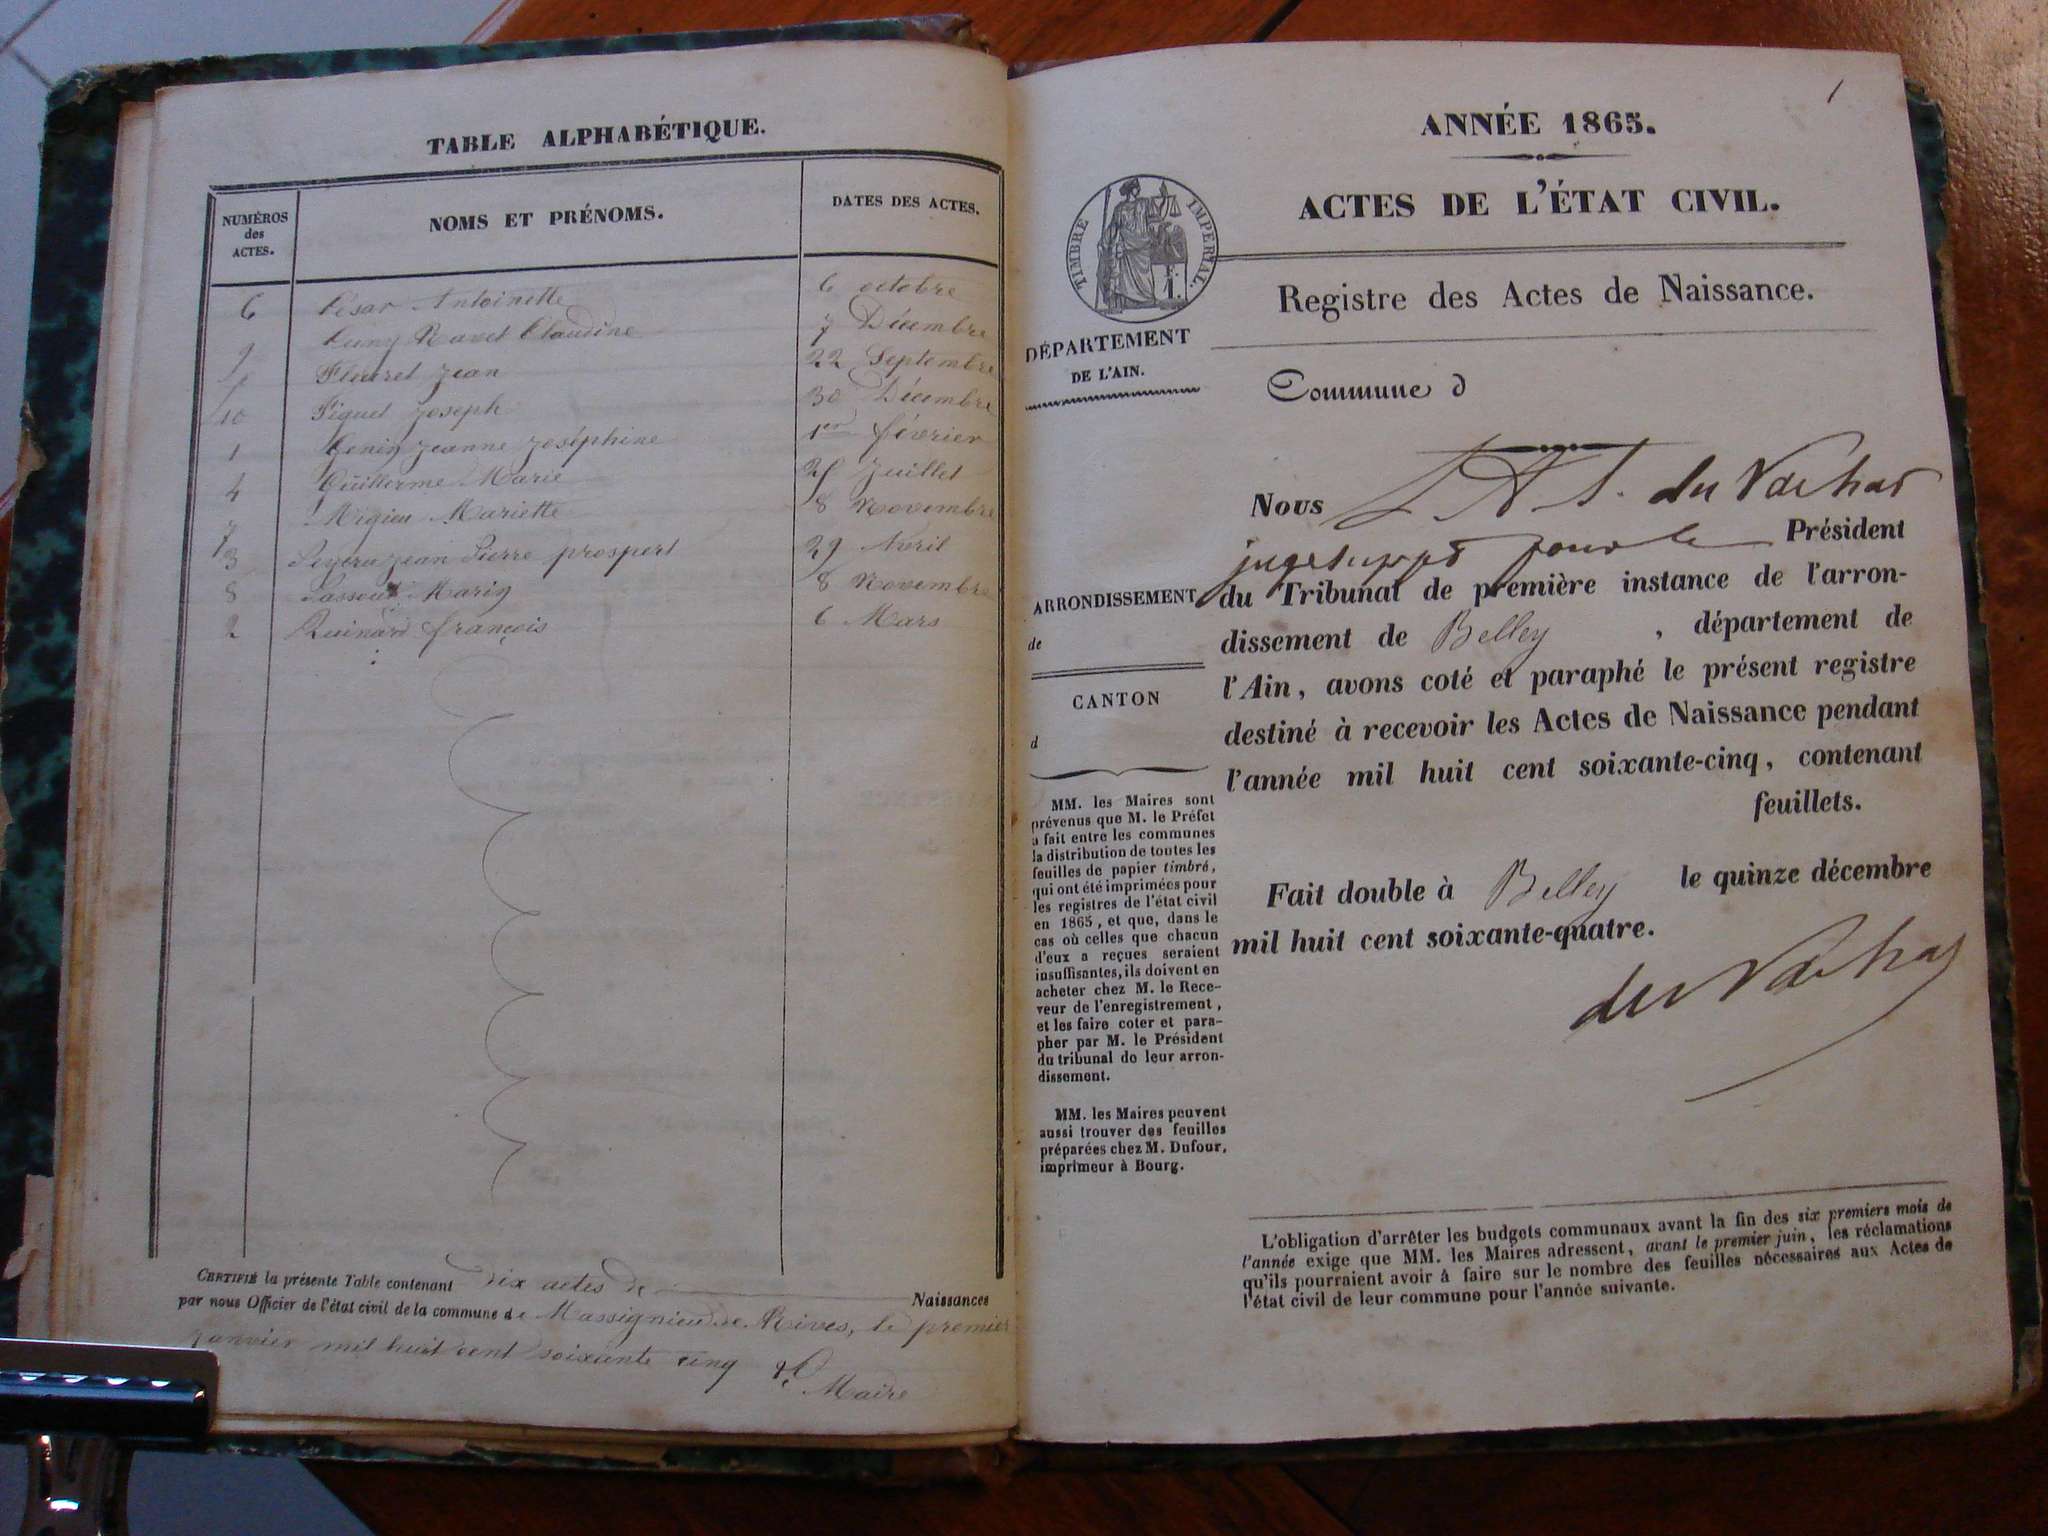 TABLE ALPHABÉTIQUE.
NUMÉROS
des
ACTES.
NOMS ET PRÉNOMS.
DATES DES ACTES.
6 César Antoinette 6 octobre
9 Cuny Ravet Claudine 7 Décembre
Fleuret Jean 22 Septembre
10 Piguet Joseph 30 Décembre
1 Genin Jeanne Joséphine 1er février
4 Guillerme Marie Juillet
7 Migieu Mariette 8 Novembre
3 Jean Pierre prospert 29 Avril
8 Marie 8 Novembre
2 françois 6 Mars
CERTIFIÉ la présente Table contenant dix actes de Naissances
par nous Officier de l'état civil de la commune de Massignieu de Rives, le premier
Janvier mil huit cent soixante cinq
Maire
1
ANNÉE 1865.
ACTES DE L'ÉTAT CIVIL.
TIMBRE IMPÉRIAL.
Registre des Actes de Naissance.
DÉPARTEMENT
DE L'AIN.
Commune d
Nous du Vachat
juge supp pour le Président
du Tribunal de première instance de l'arron-
dissement de Belley , département de
l'Ain, avons coté et paraphé le présent registre
destiné à recevoir les Actes de Naissance pendant
l'année mil huit cent soixante-cinq, contenant
feuillets.
Fait double à Belley le quinze décembre
mil huit cent soixante-quatre.
du Vachat
ARRONDISSEMENT
de
CANTON
d
MM. les Maires sont
prévenus que M. le Préfet
a fait entre les communes
la distribution de toutes les
feuilles de papier timbré,
qui ont été imprimées pour
les registres de l'état civil
en 1865, et que, dans le
cas où celles que chacun
d'eux a reçues seraient
insuffisantes, ils doivent en
acheter chez M. le Rece-
veur de l'enregistrement,
et les faire coter et para-
pher par M. le Président
du tribunal de leur arron-
dissement.
MM. les Maires peuvent
aussi trouver des feuilles
préparées chez M. Dufour,
imprimeur à Bourg.
L'obligation d'arrêter les budgets communaux avant la fin des six premiers mois de
l'année exige que MM. les Maires adressent, avant le premier juin, les réclamations
qu'ils pourraient avoir à faire sur le nombre des feuilles nécessaires aux Actes de
l'état civil de leur commune pour l'année suivante.